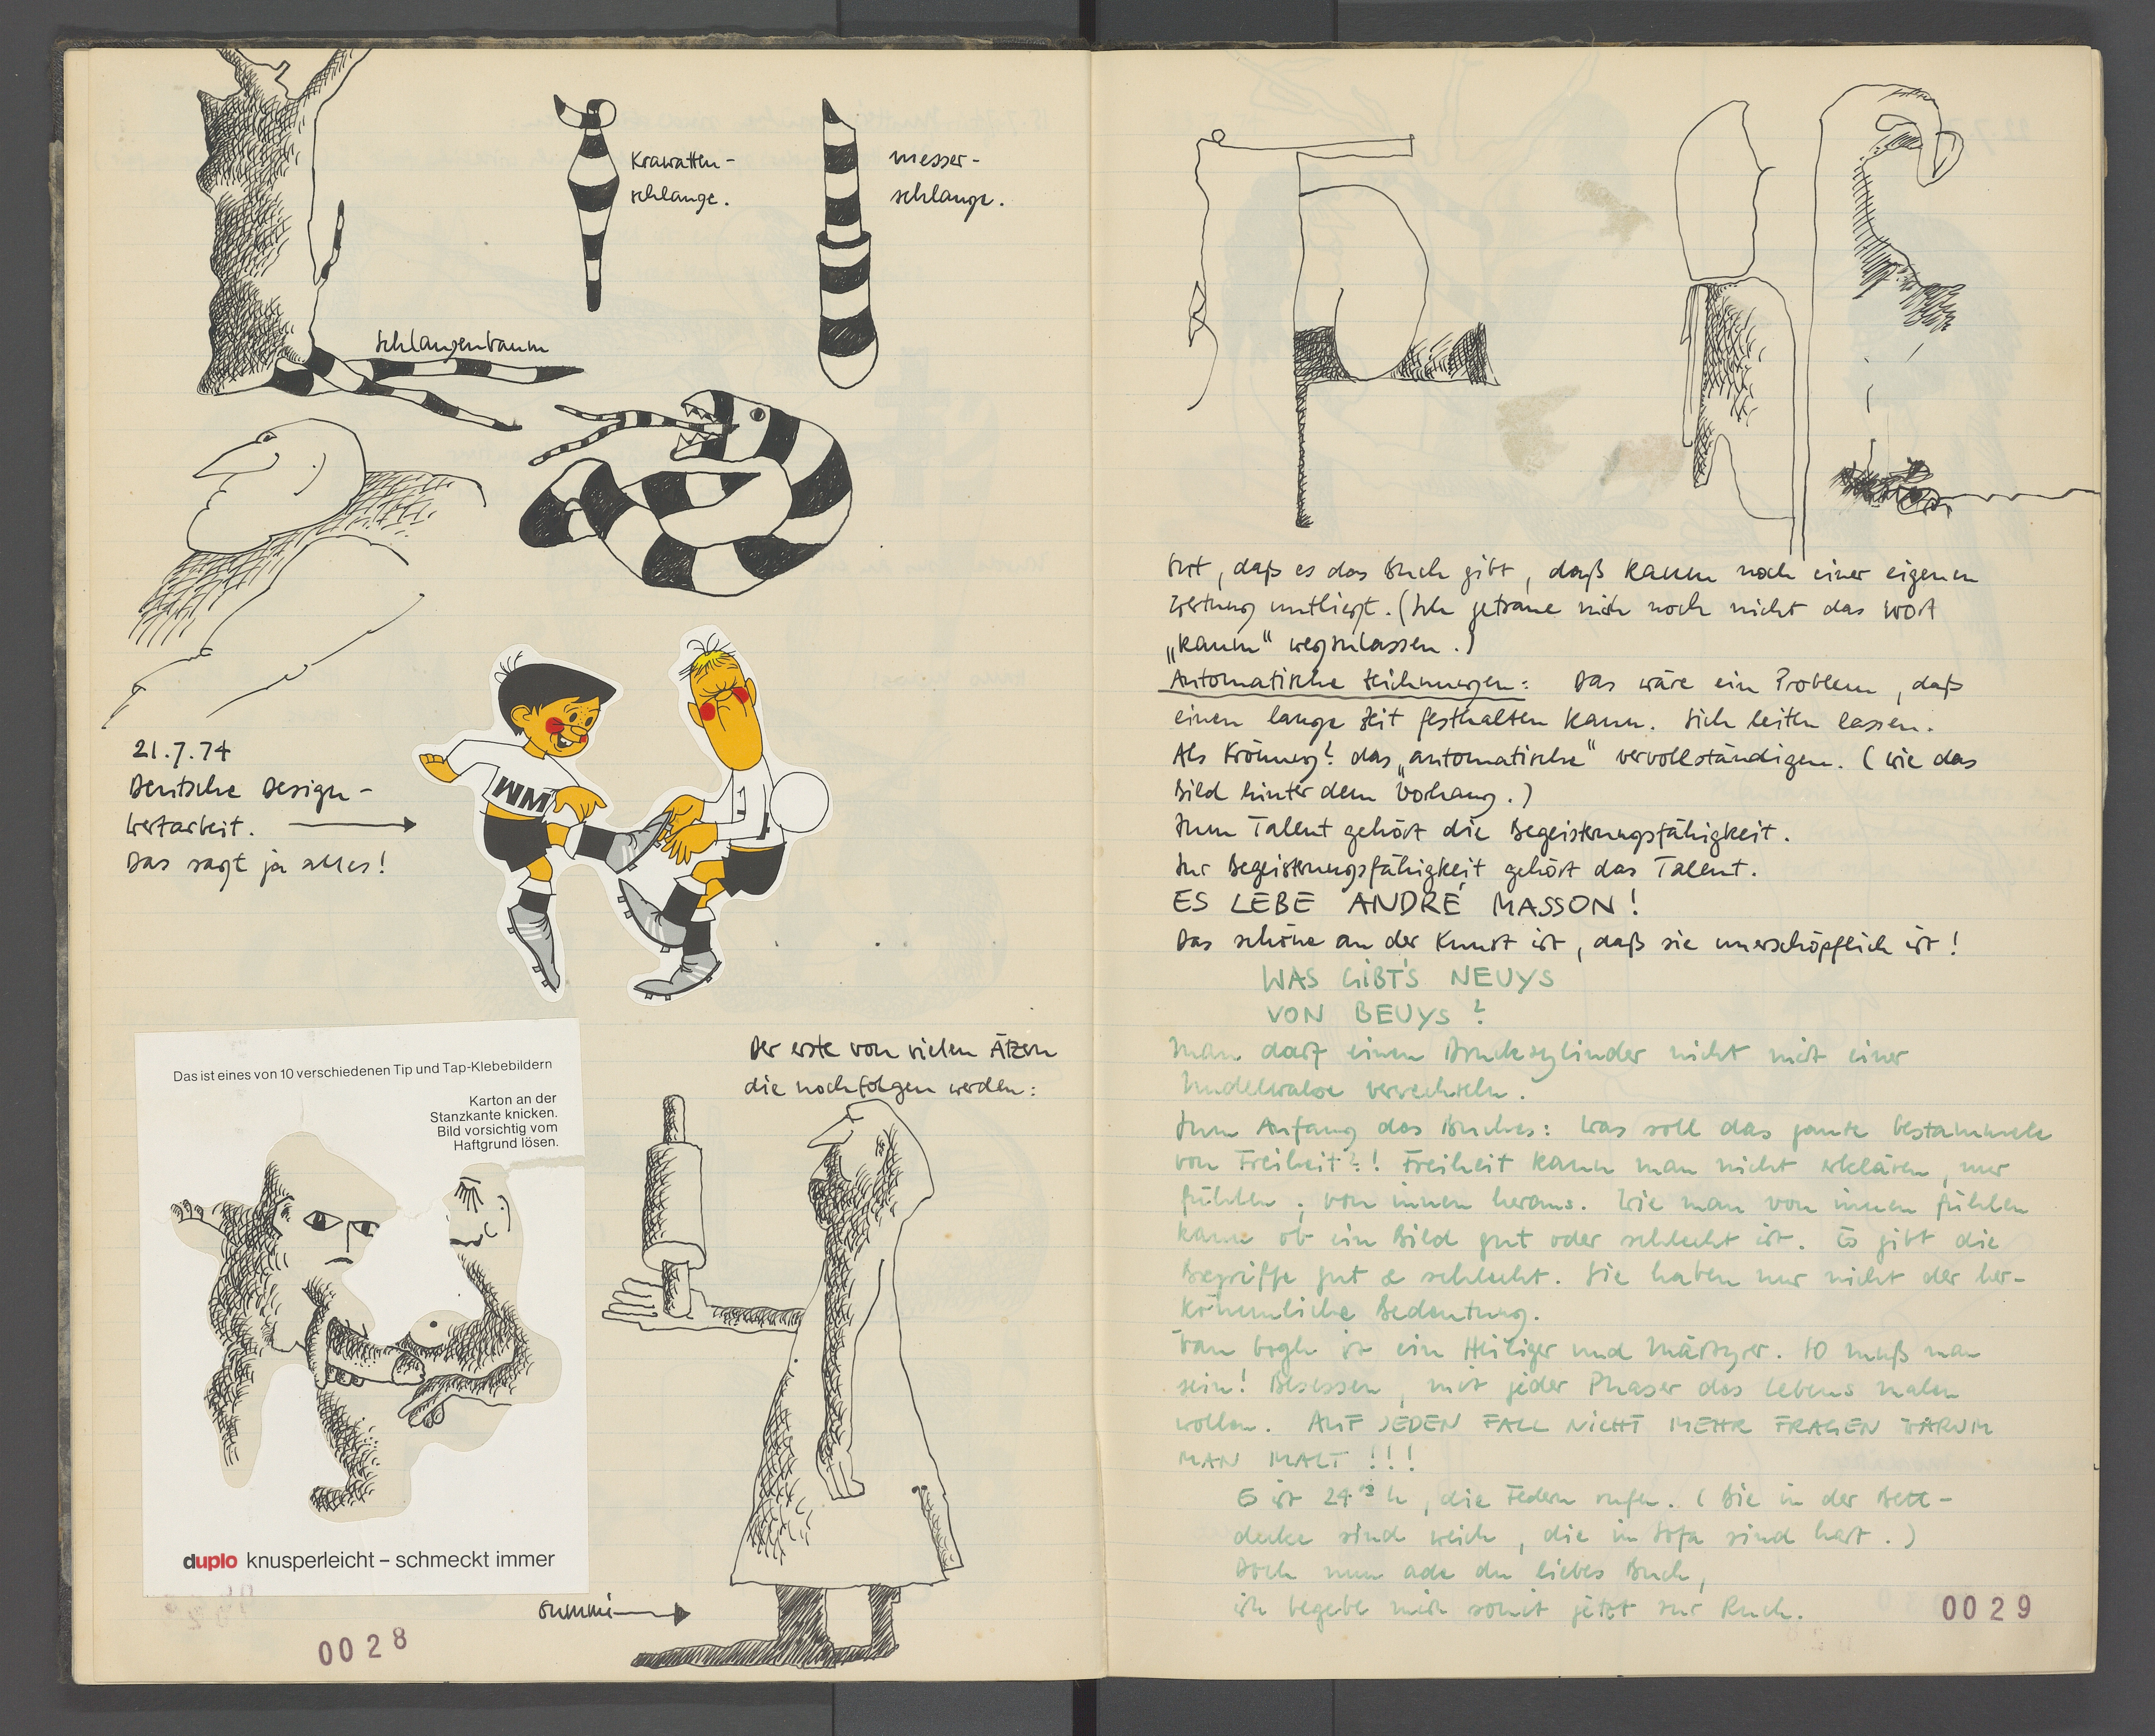 Krawatten-
schlange.
messer-
schlange.
Schlangenbaum
21.7.74
Deutsche Design-
Wertarbeit.
Das sagt ja alles!
WM
Das ist eines von 10 verschiedenen Tip und Tap-Klebebildern
Karton an der
Stanzkante knicken.
Bild vorsichtig vom
Haftgrund lösen.
duplo knusperleicht – schmeckt immer
Der erste von vielen Ätzern
die noch folgen werden:
Gummi
0028
Gut, daß es das Buch gibt, daß kaum noch einer eigenen
Wertung unterliegt. (Ich getraue mich noch nicht das Wort
„kaum" wegzulassen.)
Automatische Zeichnungen: Das wäre ein Problem, daß
einen lange Zeit festhalten kann. Sich leiten lassen.
Als Krönung? das „automatische" vervollständigen. (wie das
Bild hinter dem Vorhang.)
Zum Talent gehört die Begeisterungsfähigkeit.
Zur Begeisterungsfähigkeit gehört das Talent.
ES LEBE ANDRÉ MASSON!
Das schöne an der Kunst ist, daß sie unerschöpflich ist!
WAS GIBT'S NEUYS
VON BEUYS?
Man darf einen Druckzylinder nicht mit einer
Nudelwalze verwechseln.
Zum Anfang des Buches: Was soll das ganze Gestammele
von Freiheit?! Freiheit kann man nicht erklären, nur
fühlen, von innen heraus. Wie man von innen fühlen
kann ob ein Bild gut oder schlecht ist. Es gibt die
Begriffe gut & schlecht. Sie haben nur nicht der her-
kömmliche Bedeutung.
Van Gogh ist ein Heiliger und Märtyrer. SO muß man
sein! Besessen, mit jeder Phaser des Lebens malen
wollen. AUF JEDEN FALL NICHT MEHR FRAGEN WARUM
MAN MALT!!!
Es ist 24 h, die Federn rufen. (Die in der Bett-
decke sind weich, die im Sofa sind hart.)
Doch nun ade du liebes Buch,
ich begebe mich somit jetzt zur Ruch.
0029